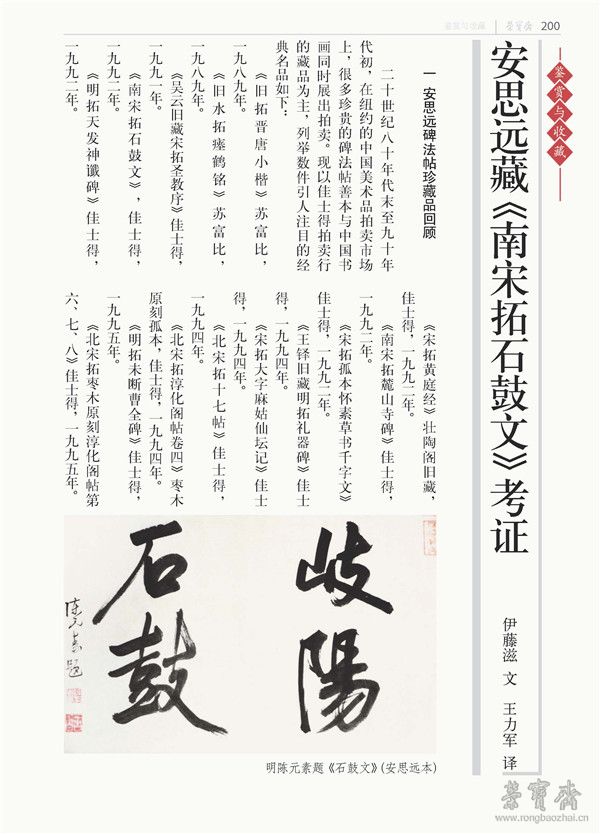 鉴赏与收藏 荣宝斋 200
鉴赏与收藏
安思远藏《南宋拓石鼓文》考证
伊藤滋 文 王力军 译
一 安思远碑法帖珍藏品回顾
二十世纪八十年代末至九十年
代初，在纽约的中国美术品拍卖市场
上，很多珍贵的碑法帖善本与中国书
画同时展出拍卖。现以佳士得拍卖行
的藏品为主，列举数件引人注目的经
典名品如下：
《旧拓晋唐小楷》苏富比，
一九八九年。
《旧水拓瘗鹤铭》苏富比，
一九八九年。
《吴云旧藏宋拓圣教序》佳士得，
一九九一年。
《南宋拓石鼓文》，佳士得，
一九九二年。
《明拓天发神谶碑》佳士得，
一九九二年。
《宋拓黄庭经》壮陶阁旧藏，
佳士得，一九九二年。
《南宋拓麓山寺碑》佳士得，
一九九二年。
《宋拓孤本怀素草书千字文》
佳士得，一九九二年。
《王铎旧藏明拓礼器碑》佳士
得，一九九四年。
《宋拓大字麻姑仙坛记》佳士
得，一九九四年。
《北宋拓十七帖》佳士得，
一九九四年。
《北宋拓淳化阁帖卷四》枣木
原刻孤本，佳士得，一九九四年。
《明拓未断曹全碑》佳士得，
一九九五年。
《北宋拓枣木原刻淳化阁帖第
六、七、八》佳士得，一九九五年。
岐陽
石鼓
陳元素題
明陈元素题《石鼓文》(安思远本)
荣宝斋
www.rongbaozhai.cn